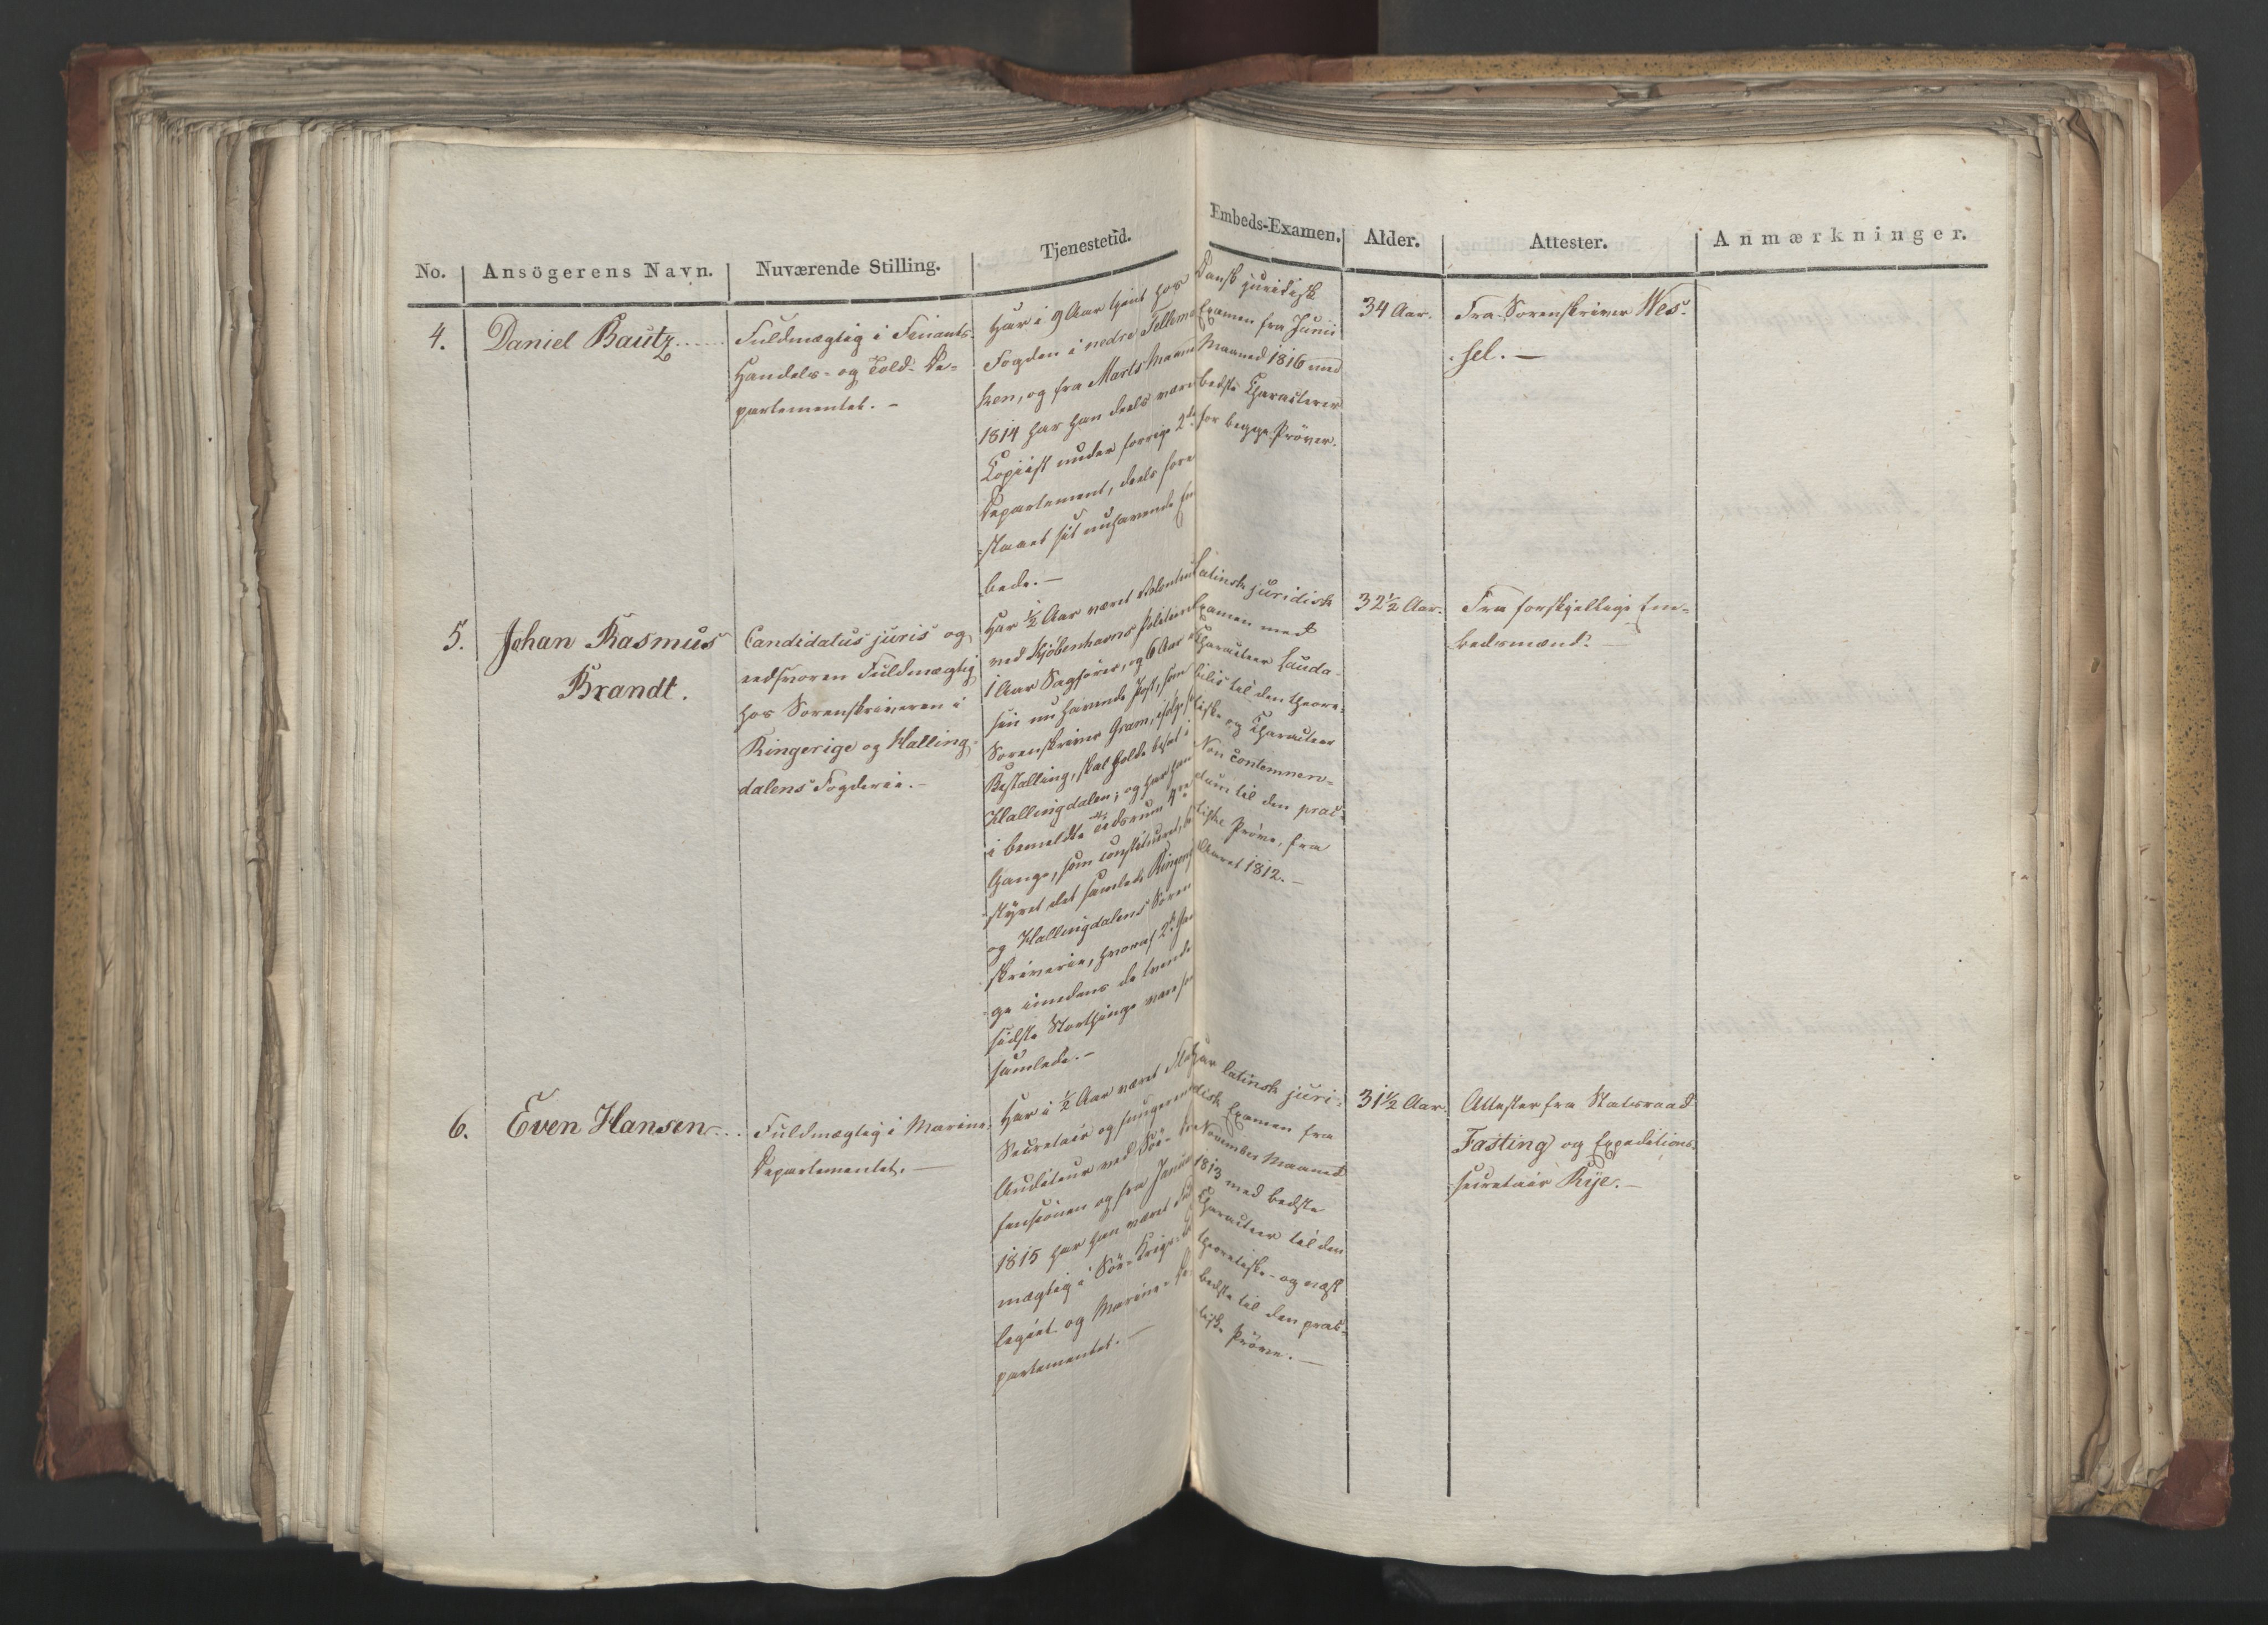 No.
Ansögerens Navn.
Nuværende Stilling.
Tjenestetid.
Embeds-Examen.
Alder.
Attester.
Anmærkninger.
4.
Daniel Bautz
Fuldmægtig i Finants-
Handels- og Told- De-
partementet. -
Har i 9 Aar tjent hos
Fogden i nedre Tellema
ken, og fra Marts Maaned
1814 har han deels været
Copiist under forrige 2det
Departement, deels fore
staaet sit nuhavende Em
bede. -
Dansk juridisk
Examen fra Junii
Maaned 1816 med
bedste Characterer
for begge Prøver.
34 Aar.
Fra Sorenskriver Wes-
sel. -
5.
Johan Rasmus
Brandt.
Candidatus juris og
eedsvoren Fuldmægtig
hos Sorenskriveren i
Ringerige og Halling-
dalens Fogderie. -
Har ½ Aar været Volontair
ved Kjøbenhavns Politie
1 Aar Sagfører, og 6 Aar i
sin nuhavende Post, som
Sorenskriver Gram, ifølge
Bestalling, skal holde besat i
Hallingdalen; og har han
i bemeldte Tidsrum 4re
Gange, som constitueret, be
styret det samlede Ringerig
og Hallingdalens Soren
skriverie, hvoraf 2de Gan
ge imedens de tvende
sidste Storthinge vare for
samlede. -
Latinsk juridisk
Examen med
Characteer Lauda-
bilis til den theore-
tiske og Characteer
Non contemnen-
dum til den prac-
tiske Prøve, fra
Aaret 1812. -
32½ Aar.
Fra forskjellige Em-
bedsmænd. -
6.
Even Hansen
Fuldmægtig i Marine-
Departementet. -
Har i ½ Aar været
Secretair og fungerende
Auditeur ved Söe- De
fensionen og fra Januar
1815 har han været Fuld
mægtig i Söe-Krigs-Col
legiet og Marine-De
partementet. -
Har latinsk juri-
disk Examen fra
November Maaned
1813 med bedste
Characteer til den
theoretiske- og næst
bedste til den prac-
tiske Prøve. -
31½ Aar.
Attester fra Statsraad
Fasting og Expeditions-
secretair Rye. -